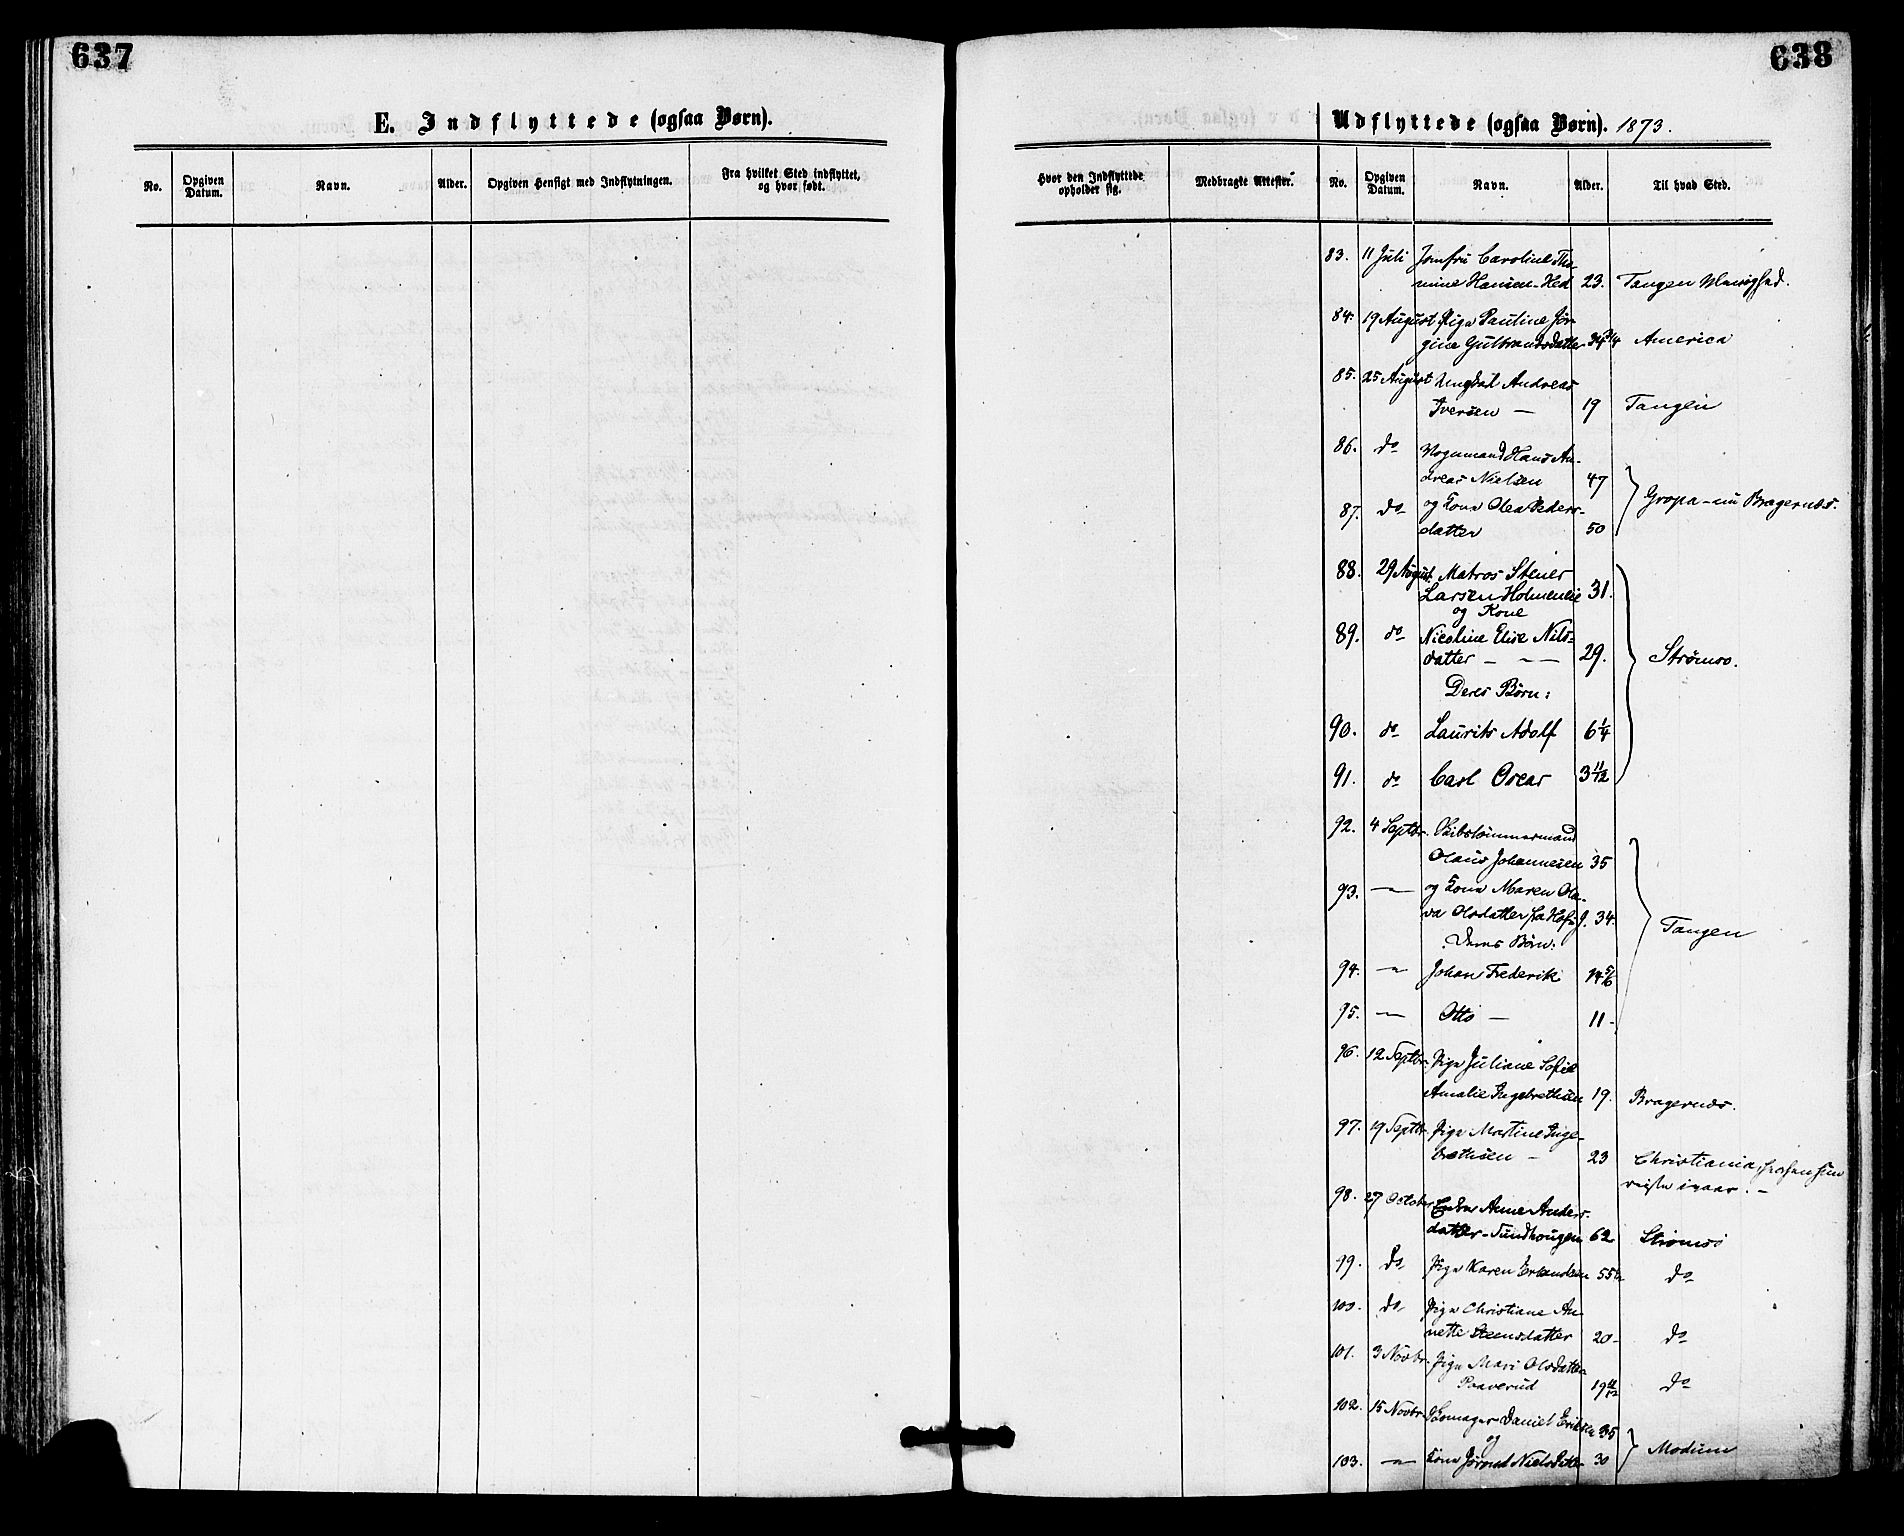 637
638
E. Indflyttede (ogsaa Børn).
No.
Opgiven Datum.
Navn.
Alder.
Opgiven Hensigt med Indflytningen.
Fra hvilket Sted indflyttet, og hvor født.
Udflyttede (ogsaa Børn). 1873.
Hvor den Indflyttede opholder sig.
Medbragte Attester.
No.
Opgiven Datum.
Navn.
Alder.
Til hvad Sted.
83. 11 Juli Jomfru Caroline Tho-
mine Hansen-Hed 23. Tangen
84. 19 August Pige Pauline Jør-
gine Gulbrandsdatter America
85. 25 August Ungkarl Andreas
Iversen — 19 Tangen
86. do Vognmand Hans An-
dreas Nielsen 47
Gropa-nu Bragernæs.
87. do og Kone Olea Peders-
datter 50
88. 29 August Matros Stener
Larsen Holmenlie 31.
og Kone
89. do Nicoline Elise Nils-
datter — 29. Strømso.
Deres Børn:
90. do Laurits Adolf 6 1/4
91. do Carl Oscar 3 11/12
92. 4 Septbr. Skibstømmermand
Olaus Johannesen 35
93. — og Kone Maren Ola-
va Olsdatter 34.
Deres Børn: Tangen
94. — Johan Frederik 14 5/6
95. — Otto — 11-
96. 12 Septbr. Pige Juliane Sofie
Amalie Ingebrethsen 19. Bragernæs.
97. 19 Septbr. Pige Martine Inge-
brethsen — 23 Christiania,
reiste ivaar. —
98. 27 October Enke Anne Anders-
datter-Sundhougen 62 Strømsø
99. do Pige Karen Erlandsen 55 do
100. do Pige Christiane An-
nette Steensdatter 20- do
101. 3 Novbr. Pige Mari Olsdatter
Paaverud 19 11/12 do
102. 15 Novbr. Skomager Daniel Eriksen 35
og Modum
103. — Kone Nielsdatter 30